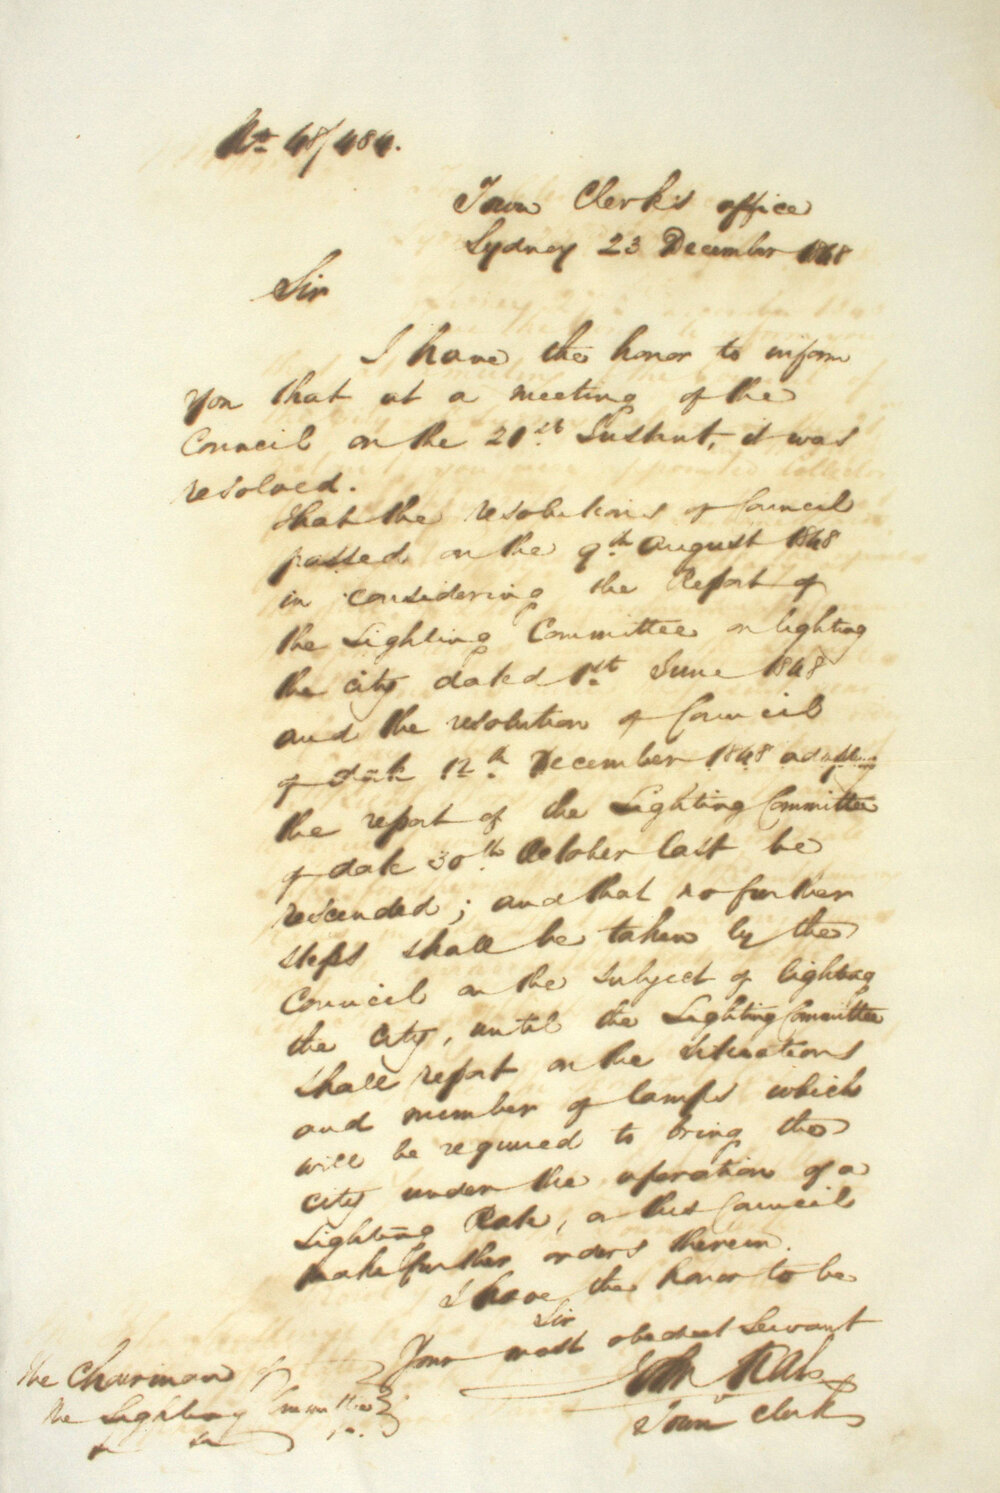 No 48/484.
Town Clerk's office
Sydney 23 December 1848
Sir
I have the honor to inform
you that at a meeting of the
Council on the 21st Instant, it was
resolved.
That the resolutions of Council
passed on the 9th August 1848
in considering the Report of
the Lighting Committee on lighting
the city dated 1st June 1848
and the resolution of Council
of date 12th December 1848 adopting
the report of the Lighting Committee
of date 30th October last be
rescinded; and that no further
steps shall be taken by the
Council on the subject of lighting
the city, until the Lighting Committee
shall report on the situations
and number of lamps which
will be required to bring the
city under the operation of a
Lighting Rate, or this Council
make further orders therein.
I have the honor to be
Sir
Your most obedient Servant
John
Town Clerk
The Chairman of
the Lighting Committee